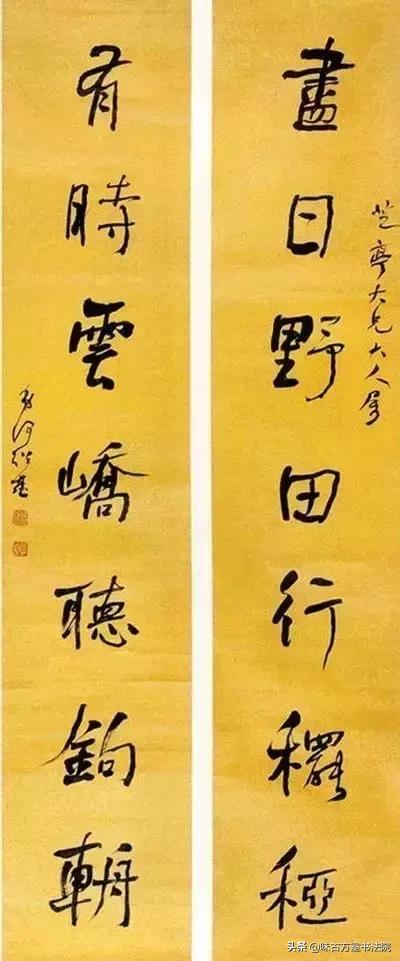 芝亭大兄大人屬
盡日野田行䆉稏
有時雲嶠聽鉤輈
弟何紹基
头条@味古方斋书法院